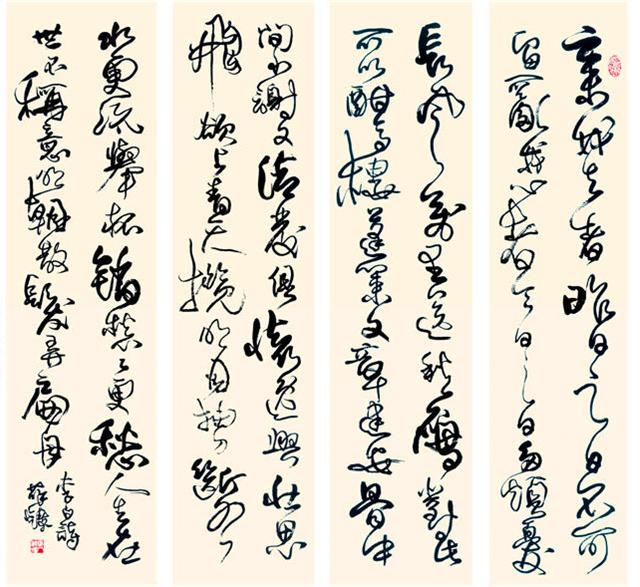 棄我去者昨日之日不可
留亂我心者今日之日多煩憂
長風萬里送秋雁對此
可以酣高樓蓬萊文章建安骨中
間小謝又清發俱懷逸興壯思
飛欲上青天攬明月抽刀斷水
水更流舉杯銷愁愁更愁人生在
世不稱意明朝散髮弄扁舟
李白詩